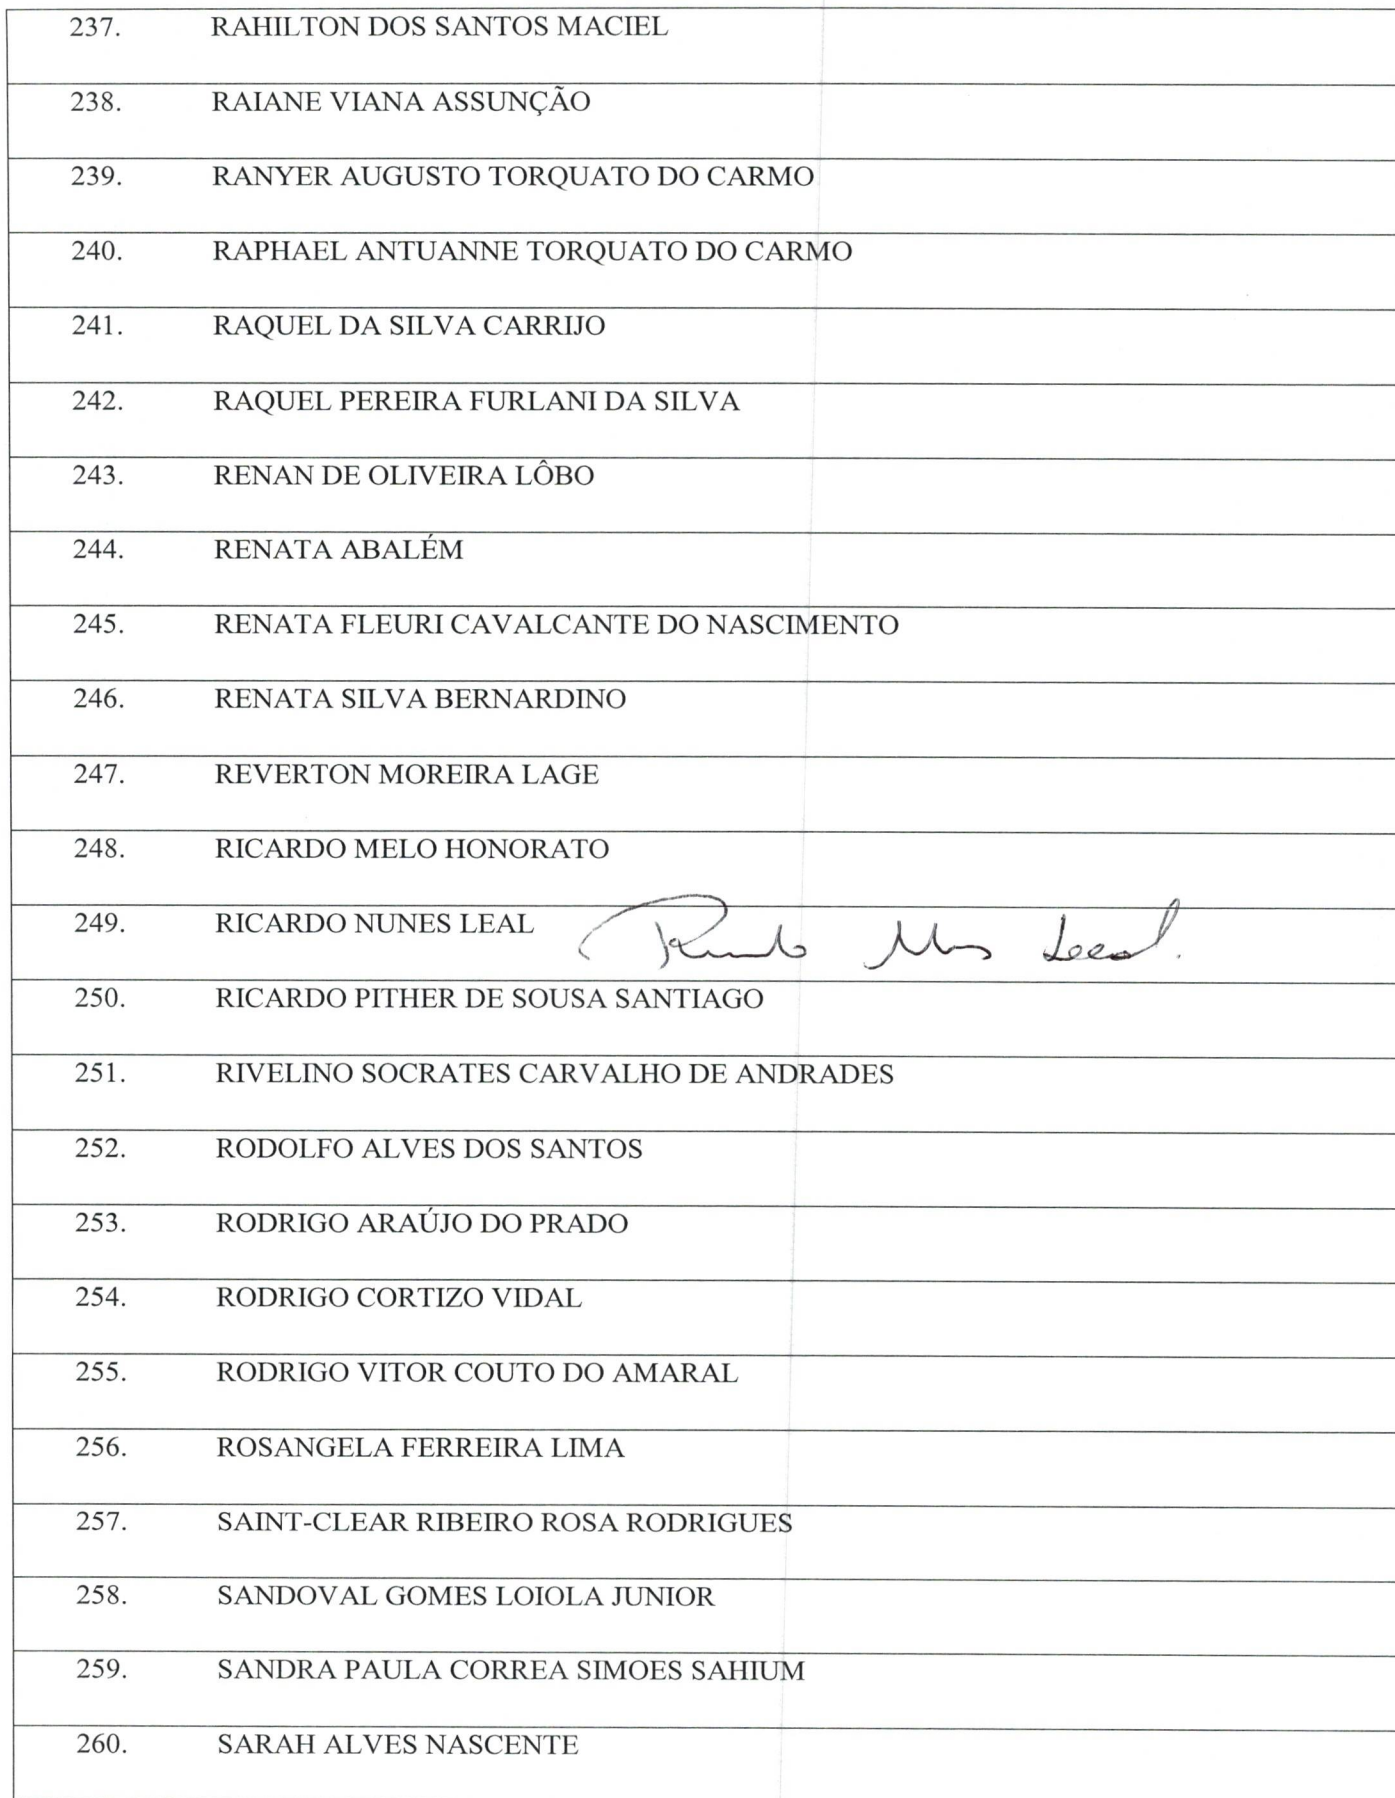 237. RAHILTON DOS SANTOS MACIEL
238. RAIANE VIANA ASSUNÇÃO
239. RANYER AUGUSTO TORQUATO DO CARMO
240. RAPHAEL ANTUANNE TORQUATO DO CARMO
241. RAQUEL DA SILVA CARRIJO
242. RAQUEL PEREIRA FURLANI DA SILVA
243. RENAN DE OLIVEIRA LÔBO
244. RENATA ABALÉM
245. RENATA FLEURI CAVALCANTE DO NASCIMENTO
246. RENATA SILVA BERNARDINO
247. REVERTON MOREIRA LAGE
248. RICARDO MELO HONORATO
249. RICARDO NUNES LEAL Leal.
250. RICARDO PITHER DE SOUSA SANTIAGO
251. RIVELINO SOCRATES CARVALHO DE ANDRADES
252. RODOLFO ALVES DOS SANTOS
253. RODRIGO ARAÚJO DO PRADO
254. RODRIGO CORTIZO VIDAL
255. RODRIGO VITOR COUTO DO AMARAL
256. ROSANGELA FERREIRA LIMA
257. SAINT-CLEAR RIBEIRO ROSA RODRIGUES
258. SANDOVAL GOMES LOIOLA JUNIOR
259. SANDRA PAULA CORREA SIMOES SAHIUM
260. SARAH ALVES NASCENTE